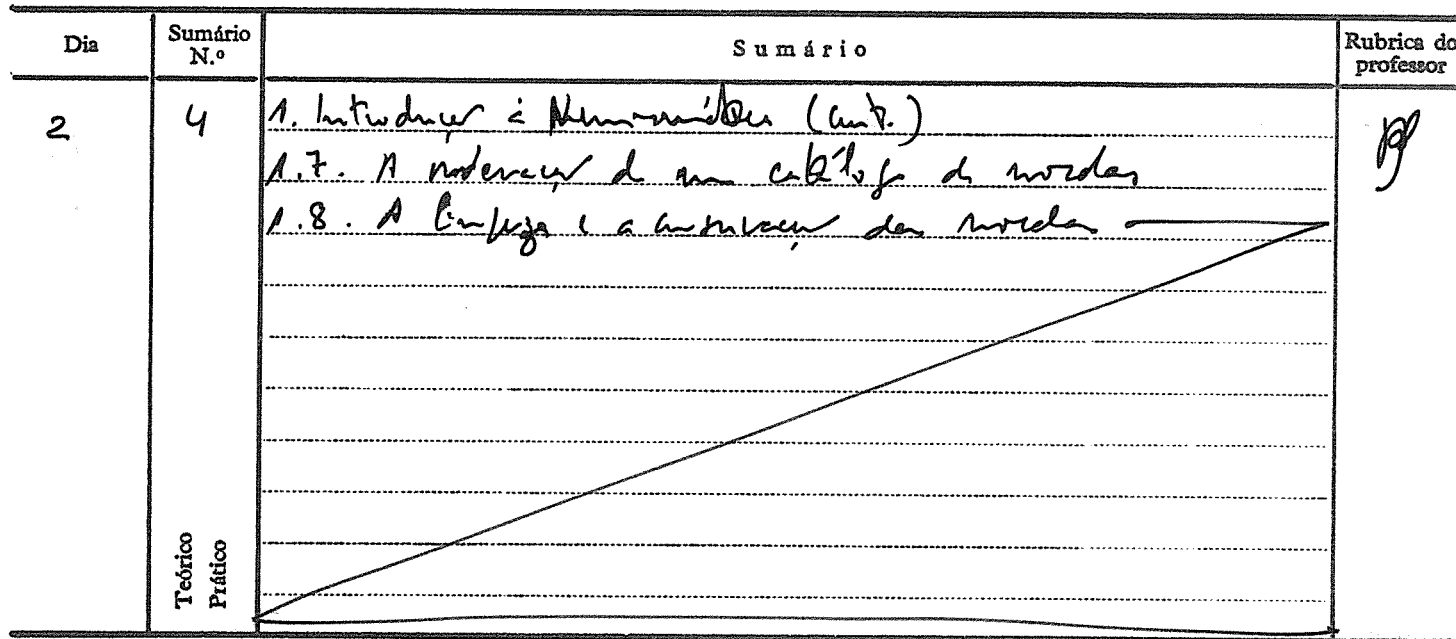 Dia
Sumário N.º
Sumário
Rubrica do professor
2
4
1. Introdução à Numismática (cont.)
1.7. A de um catálogo de moedas
1.8. A limpeza e a conservação das moedas
Teórico
Prático